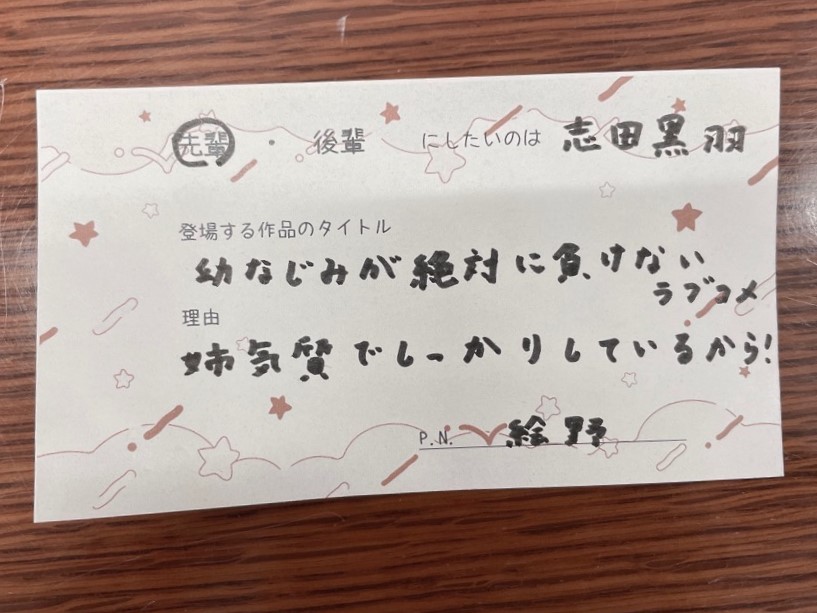 先輩 ・ 後輩 にしたいのは 志田黒羽
登場する作品のタイトル
幼なじみが絶対に負けない
ラブコメ
理由
姉気質でしっかりしているから!
P.N. 絵野